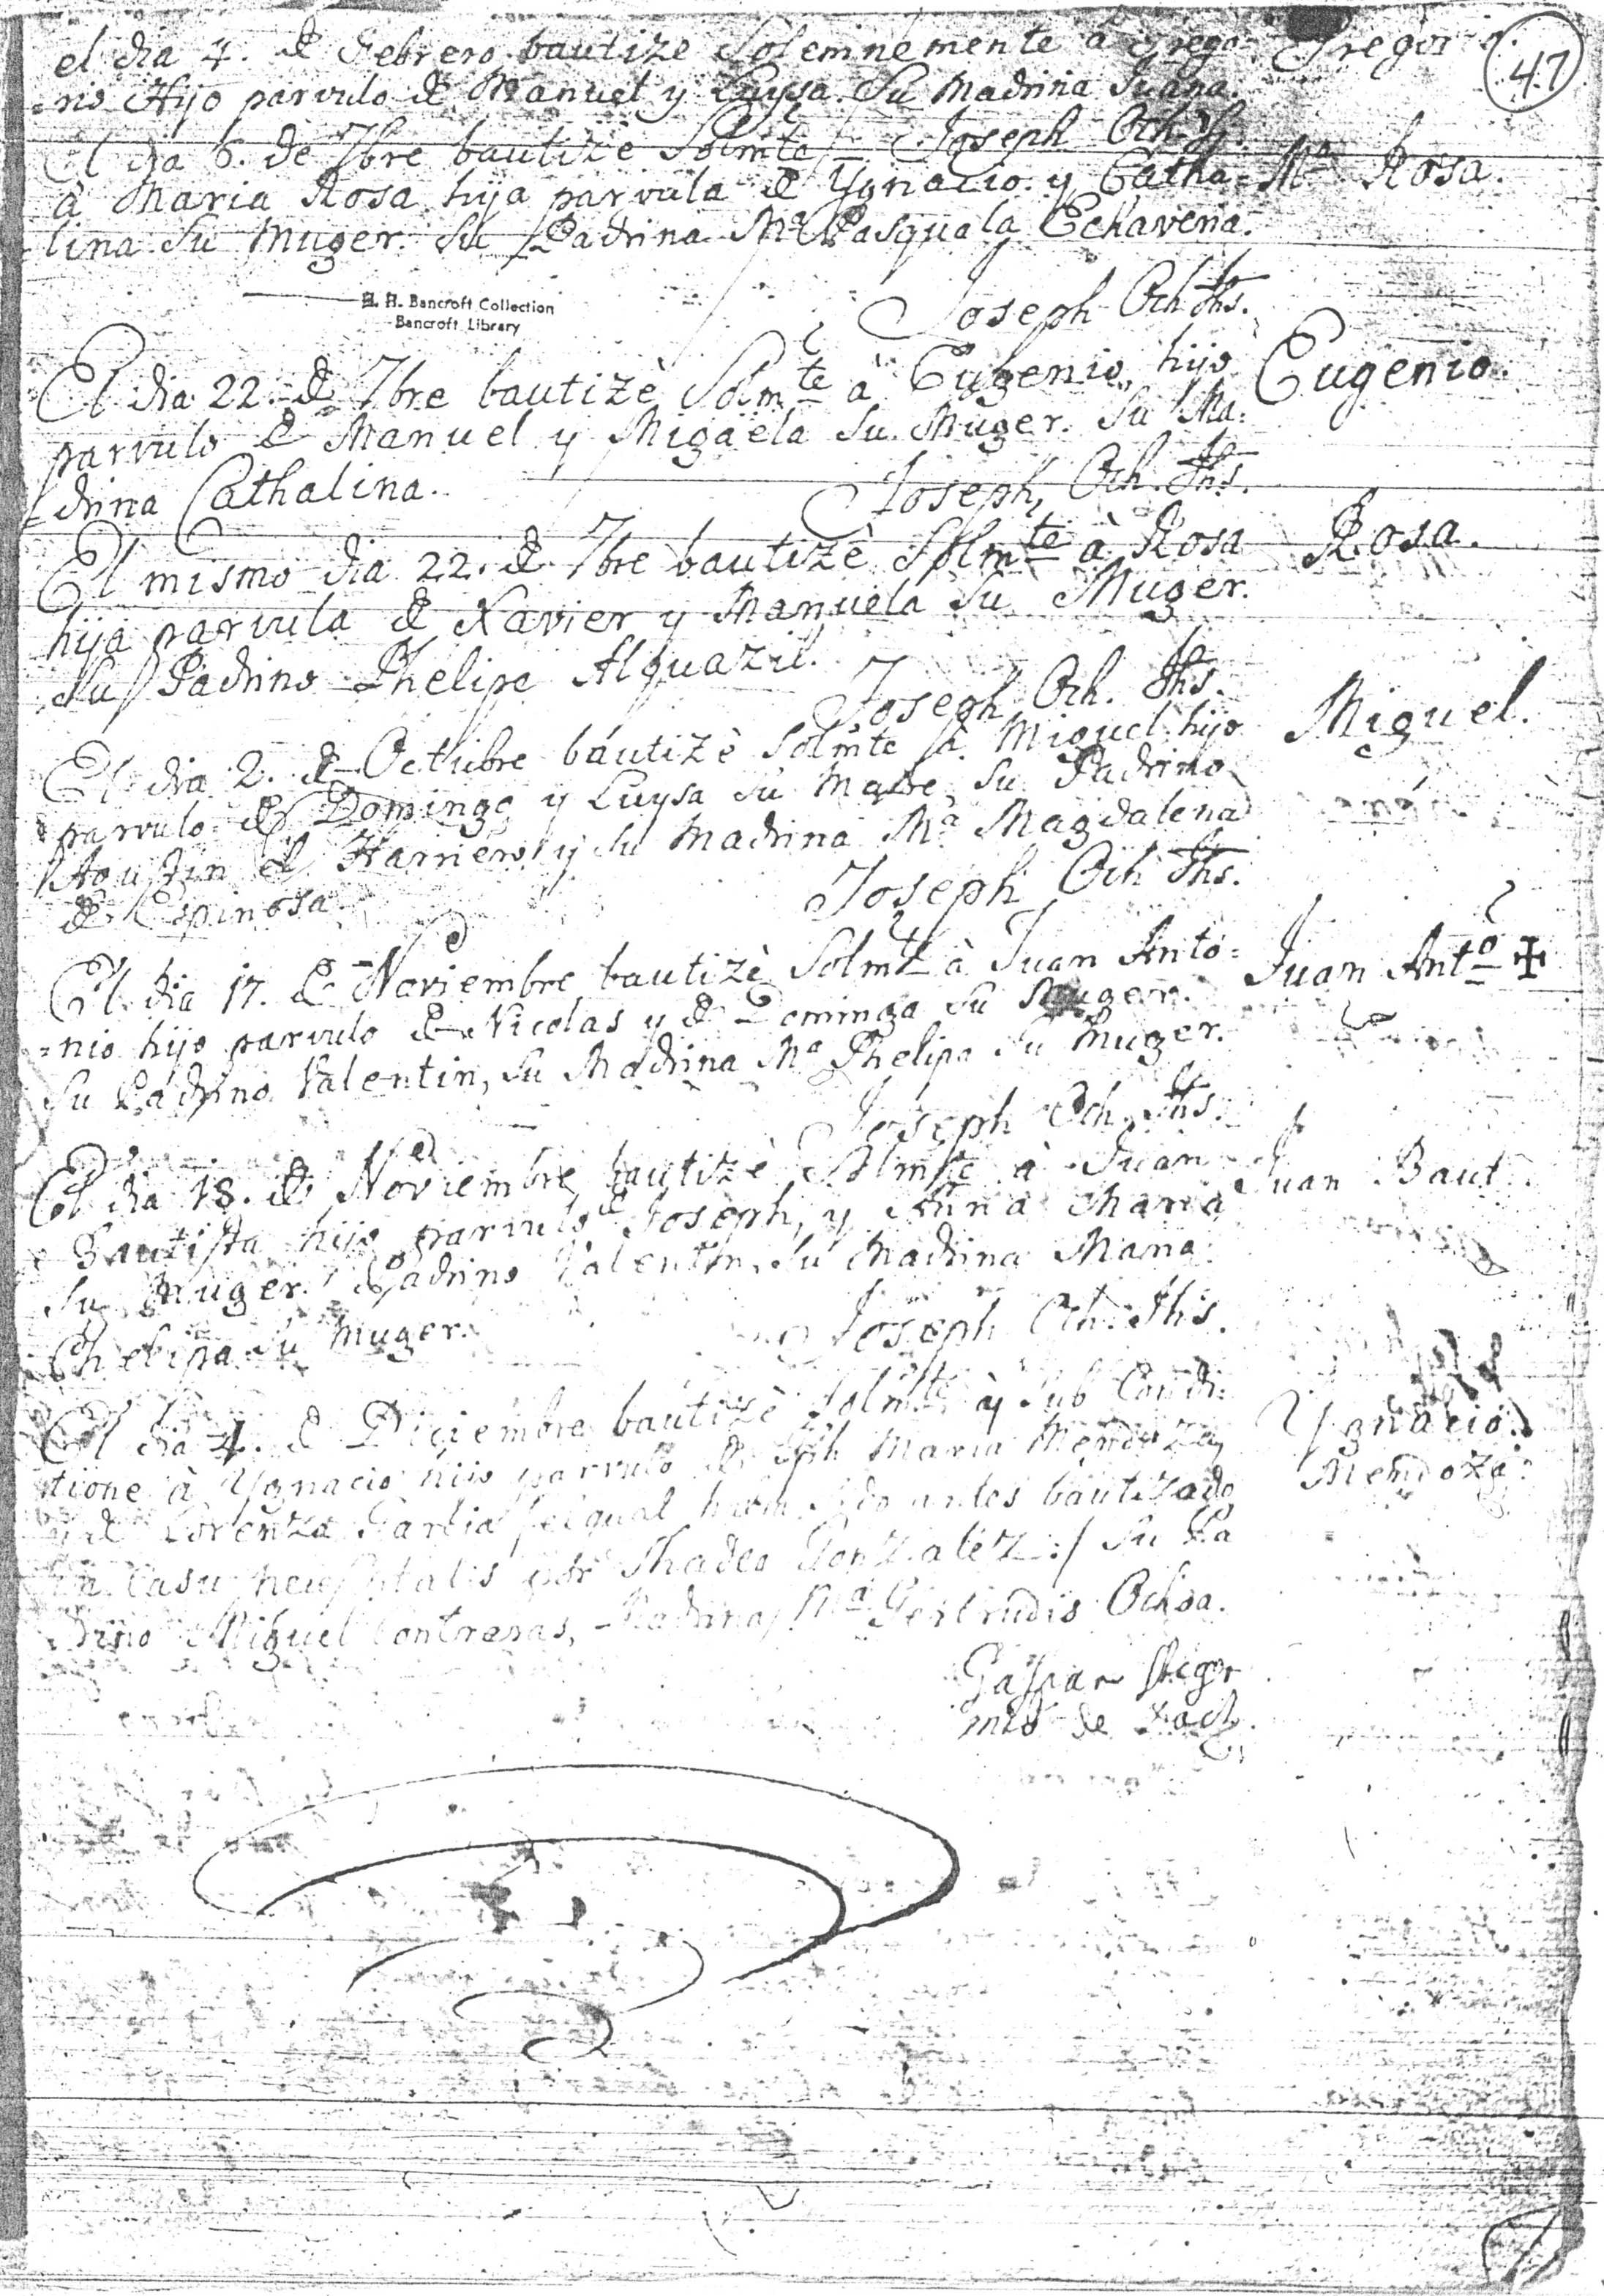 47
el dia 4. de Febrero bautize Solemnemente à Grego= Gregorio.
=rio Hijo parvulo de Manuel y Luysa. Su Madrina Juana.
Joseph Och.
El dia 6. de 7bre bautizè Solmte
à Maria Rosa hija parvula de Ygnacio. y Catha= Mª Rosa.
lina Su Muger. Su Padrina Mª Pasquala Echaveria.
Joseph Och Jhs.
H. H. Bancroft Collection
Bancroft Library
El dia 22. de 7bre bautizè Solmte à Eugenio hijo Eugenio.
parvulo de Manuel y Migaela Su Muger. Su Ma=
drina Cathalina.
Joseph Och. Jhs.
El mismo dia 22. de 7bre bautizè Solmte à Rosa Rosa.
hija parvula de Xavier y Manuela Su Muger.
Su Padrino Phelipe Alguazil.
Joseph Och. Jhs.
El dia 2. de Octubre bautizè Solmte à Miguel hijo Miguel.
parvulo de Domingo y Luysa Su Madre, Su Padrino
Agustin el Harriero y Su Madrina Mª Magdalena
de Espinosa.
Joseph Och Jhs.
El dia 17. de Noviembre bautizè Solmte à Juan Anto= Juan Antº ✠
=nio hijo parvulo de Nicolas y de Dominga Su Muger.
Su Padrino Valentin, Su Madrina Mª Phelipa Su Muger.
Joseph Och. Jhs.
El dia 18. de Noviembre bautizè Solmte à Juan Juan Baut.
Bautista hijo parvulo de Joseph, y Anna Maria
Su Muger. Padrino Valentin, Su Madrina Maria
Phelipa Su Muger.
Joseph Och. Jhs.
El dia 4. de Diciembre bautizè Solmte y Sub Condi= Ygnacio
tione à Ygnacio hijo parvulo de Jph Maria Mendoza, Mendoza.
y de Lorenza Garcia el qual antes bautizado
in Casu necessitatis por Thadeo Gonzalez:/ Su Pa
drino Miguel Contreras, Madrina Mª Gertrudis Ochoa.
Gaspar Steger
mro de